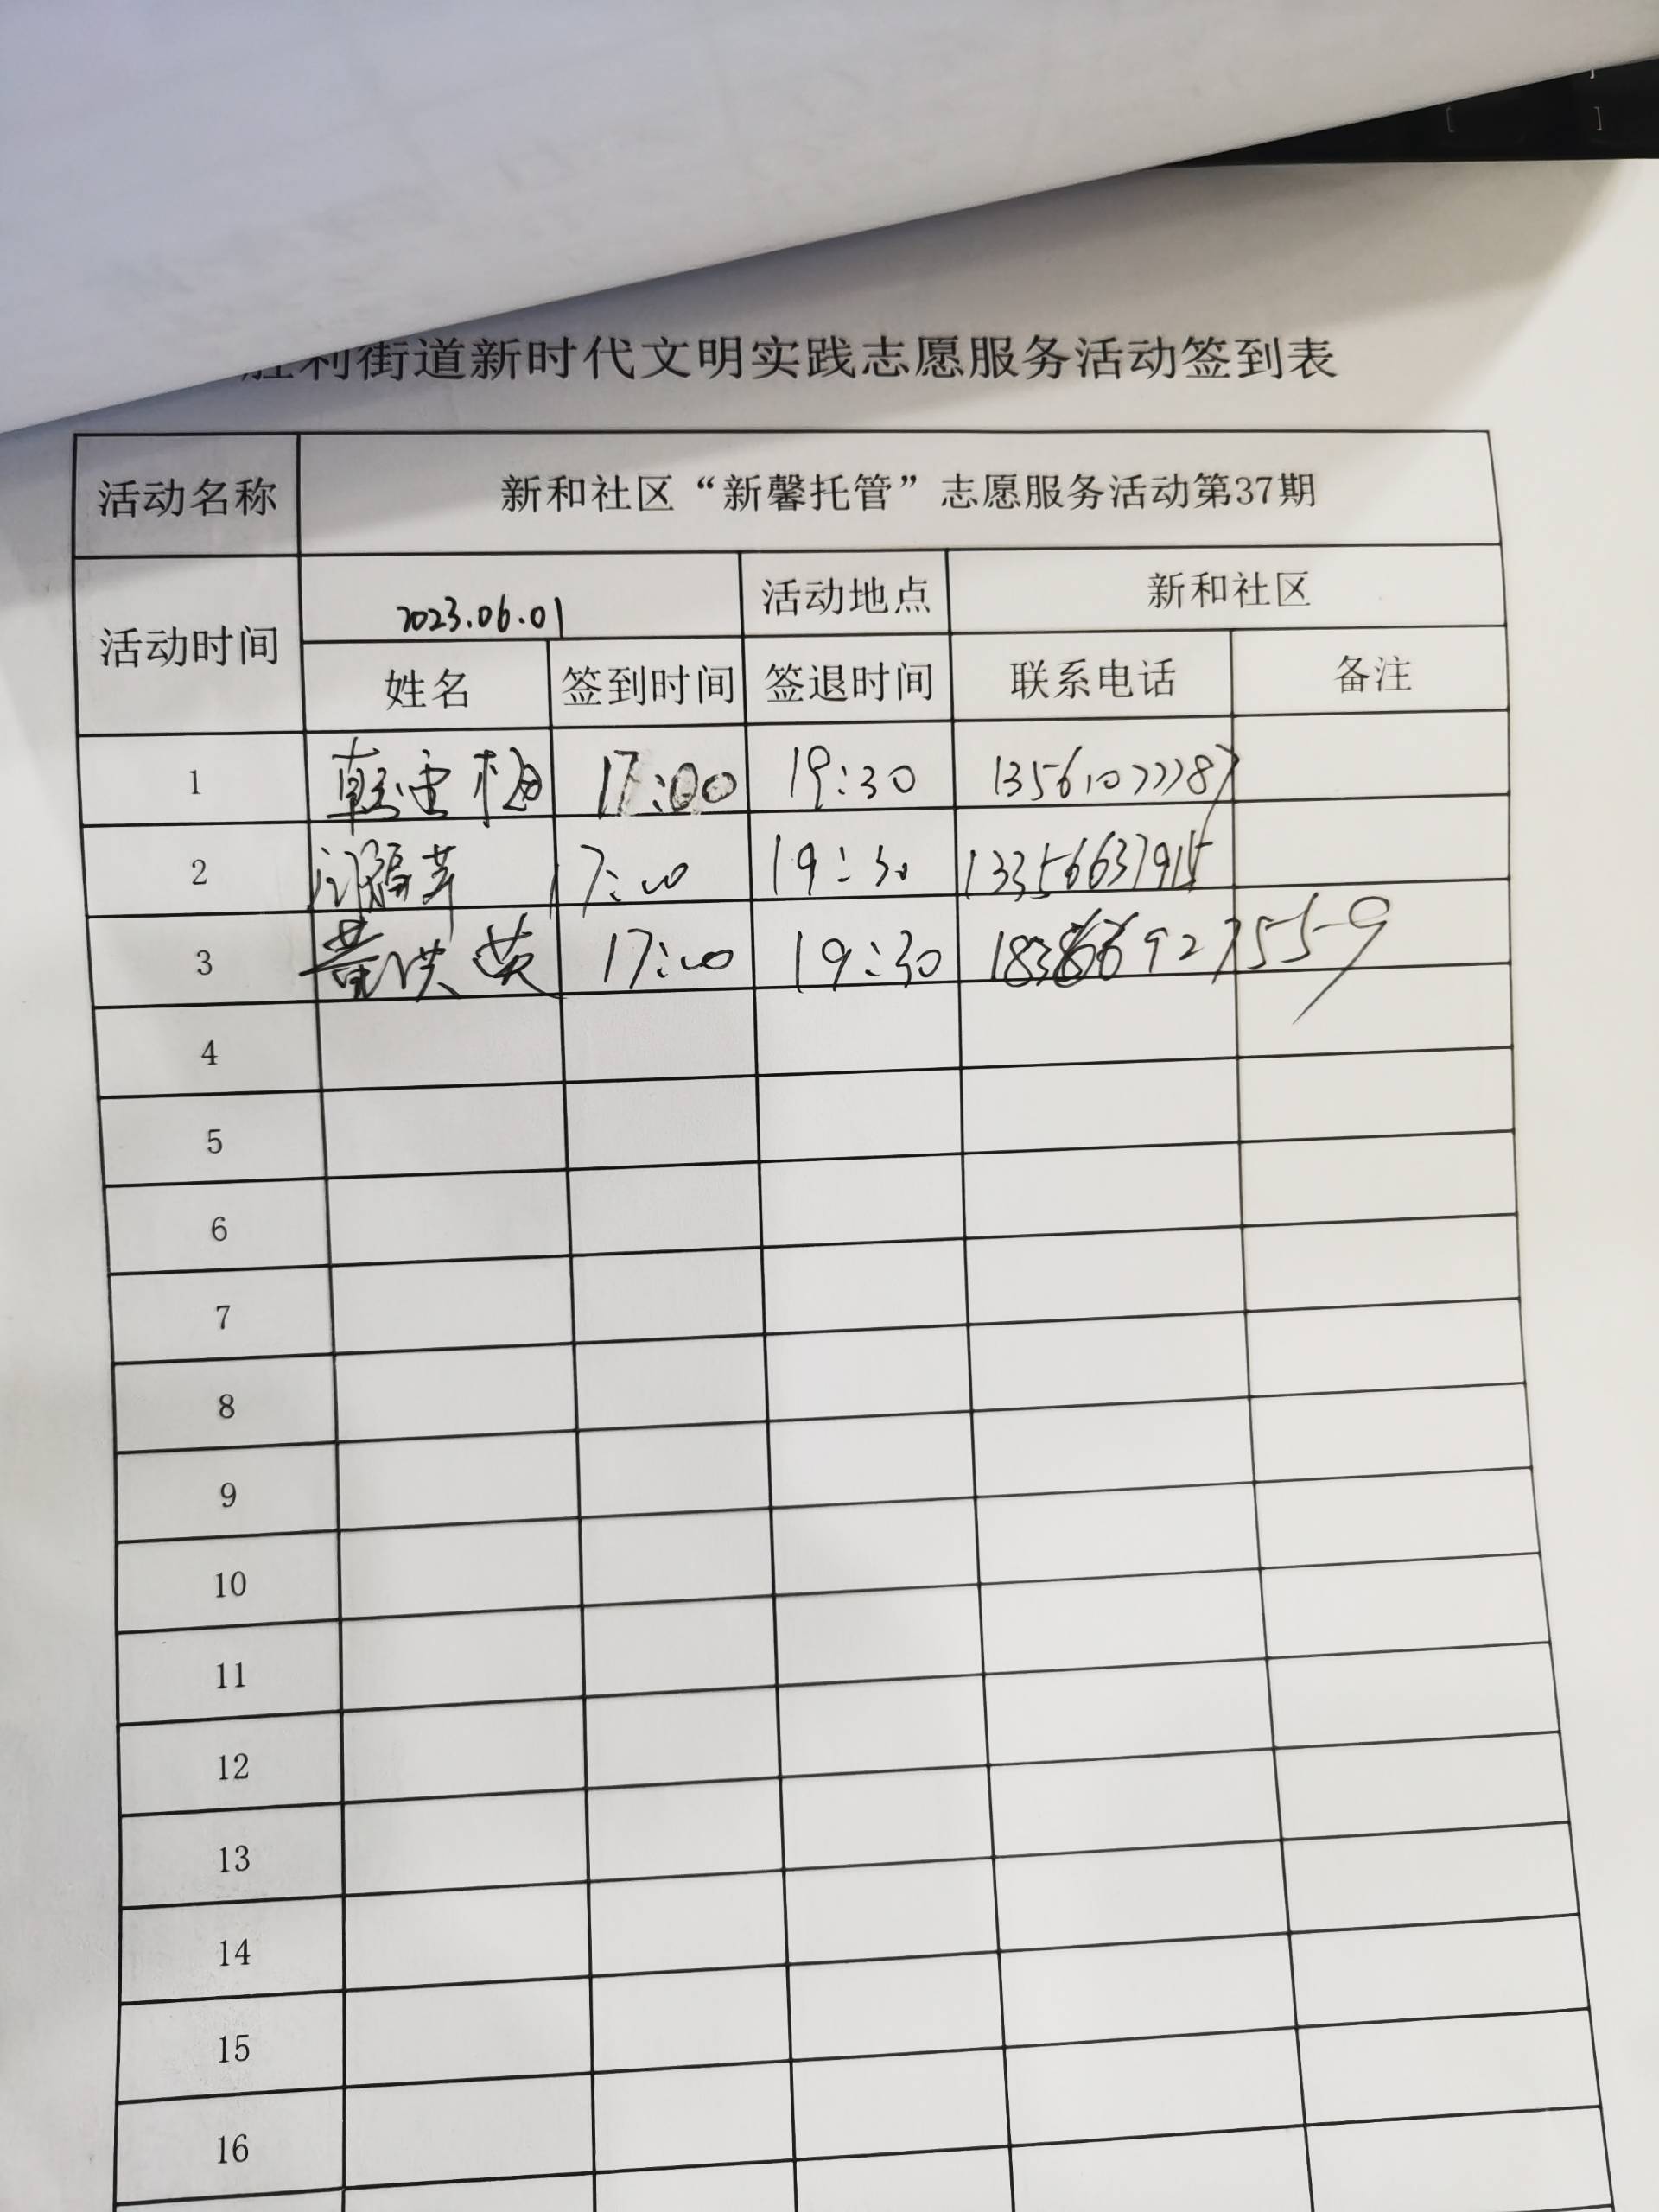 胜利街道新时代文明实践志愿服务活动签到表
活动名称 新和社区“新馨托管”志愿服务活动第37期
活动时间 2023.06.01 活动地点 新和社区
姓名 签到时间 签退时间 联系电话 备注
1 17:00 19:30
2 17:00 19:30 13356637915
3 董洪英 17:00 19:30
4
5
6
7
8
9
10
11
12
13
14
15
16